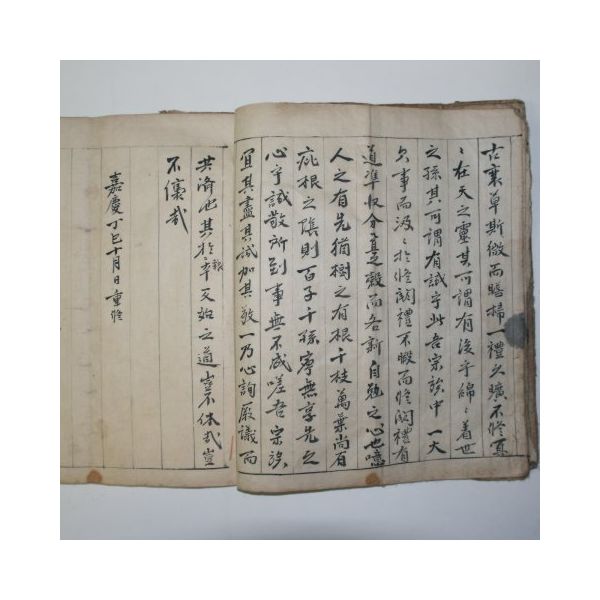 古襄草斯微而瞻掃一禮久曠不修冥
〻在天之靈其可謂有後乎綿〻着世
之孫其可謂有誠乎此吾宗族中一大
欠事而汲〻於修闕禮不暇而修闕禮有
道準收分㝎穀而各新自勉之心也噫
人之有先猶樹之有根千枝萬葉尚有
庇根之蔭則百子千孫寧無享先之
心乎誠敬所到事無不成嗟吾宗族
宜其盡其誠加其敬一乃心詢厥議而
共濟也其於辛艱又始之道豈不休哉豈
不儀哉
嘉慶丁巳十月日重修